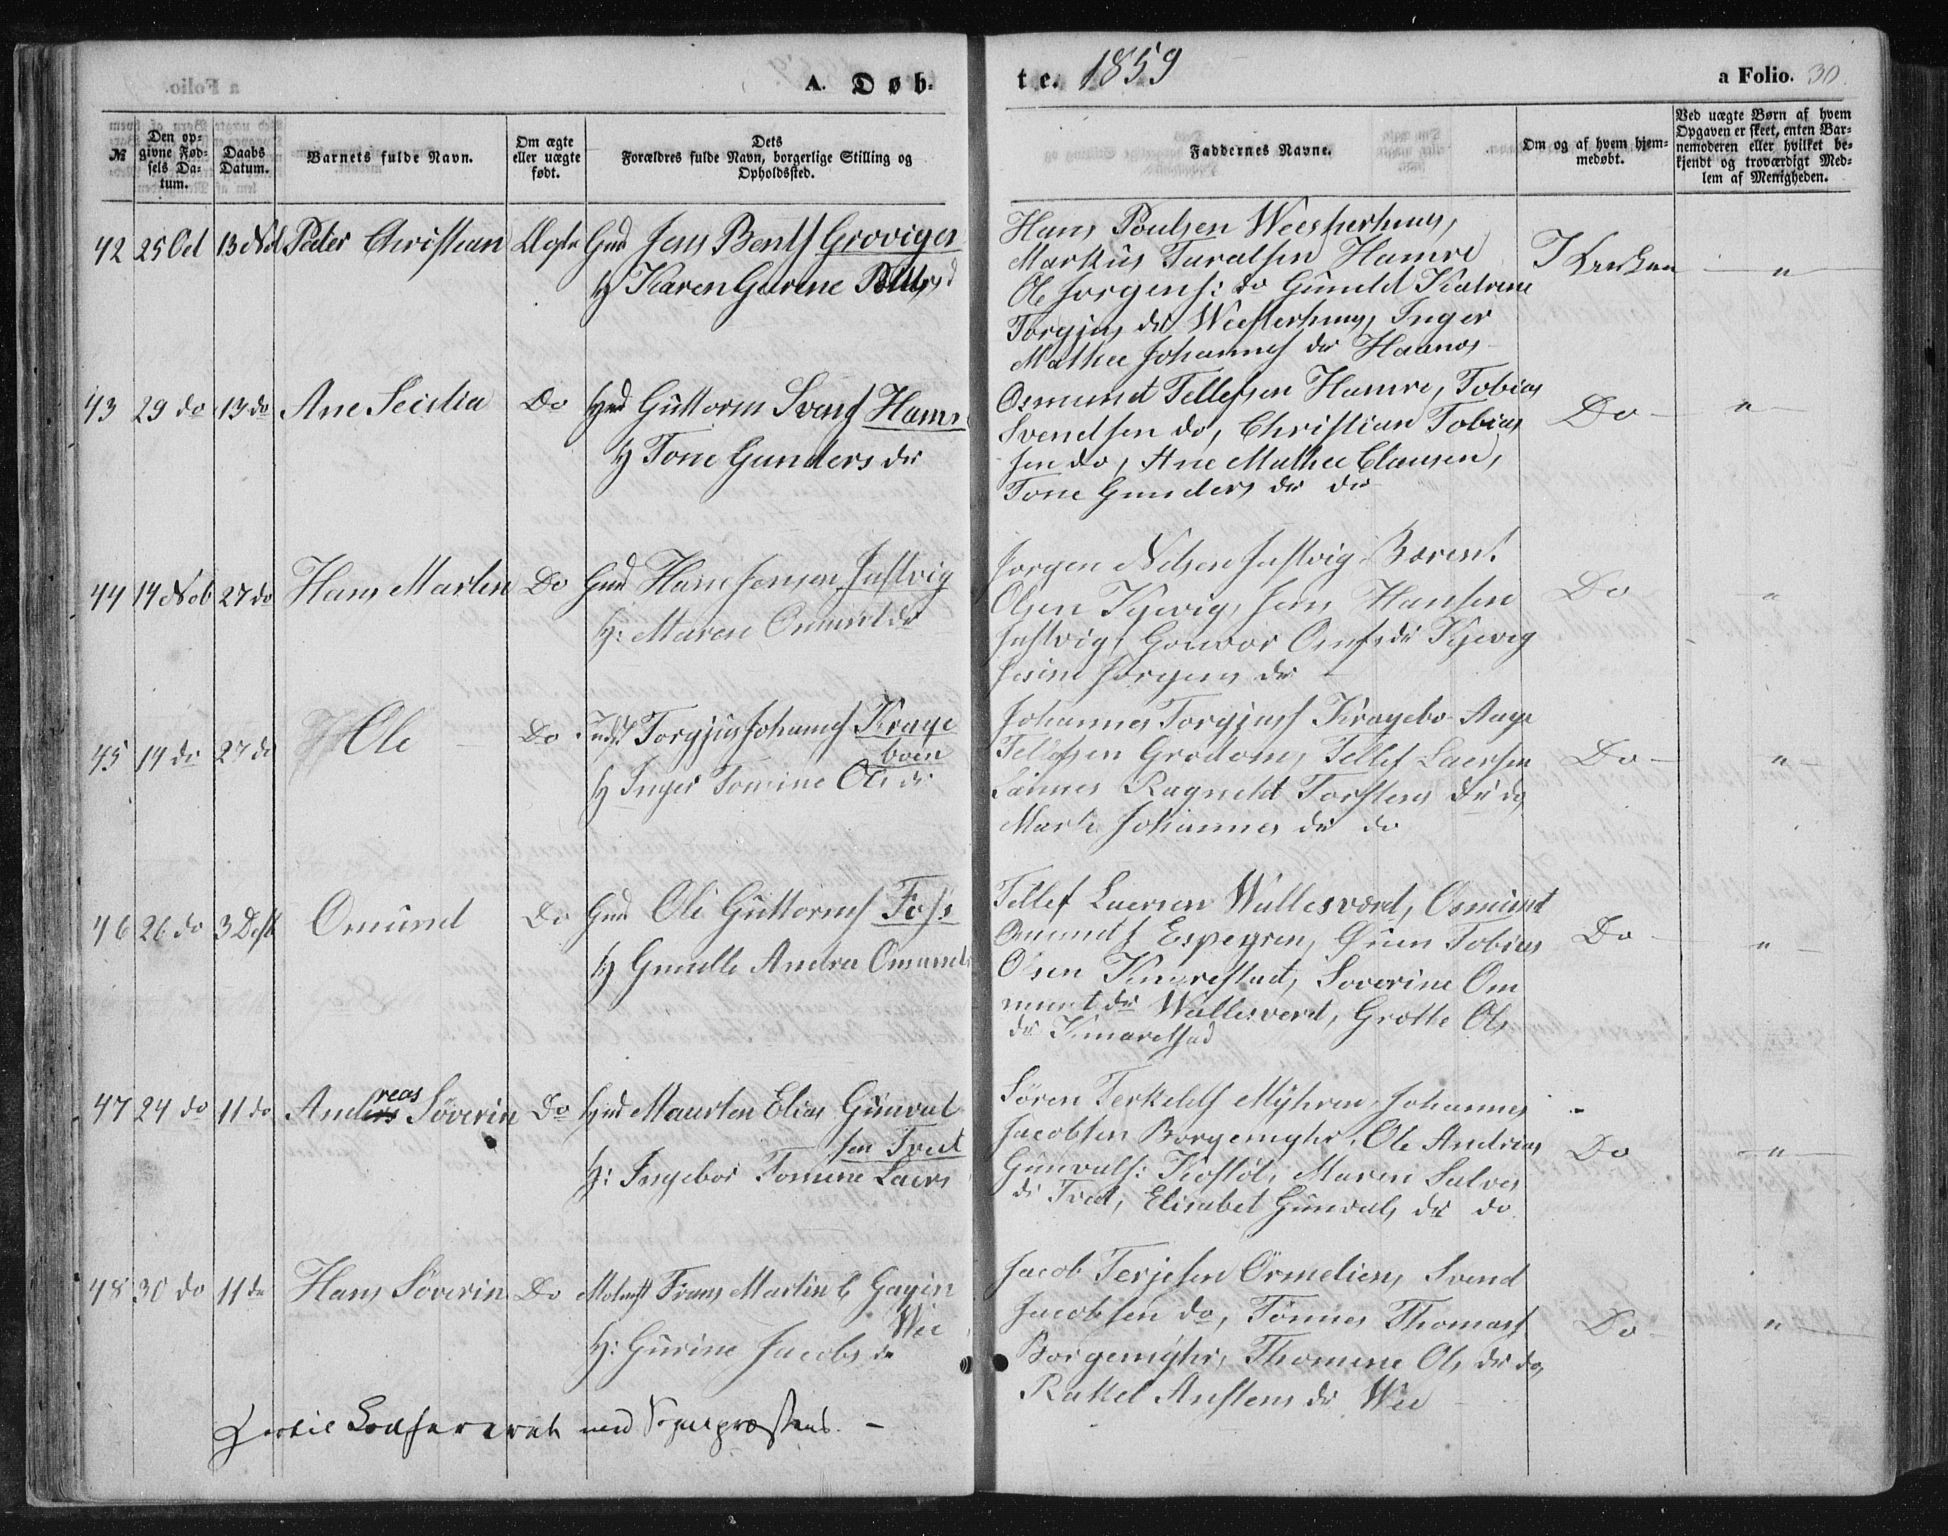 A. Døb-
te. 1859
a Folio. 30.
№
Den op-
givne Fød-
sels Da-
tum.
Daabs
Datum.
Barnets fulde Navn.
Om ægte
eller uægte
født.
Dets
Forældres fulde Navn, borgerlige Stilling og
Opholdssted.
Faddernes Navne.
Om og af hvem hjem-
medøbt.
Ved uægte Børn af hvem
Opgaven er skeet, enten Bar-
nemoderen eller hvilket be-
kjendt og troværdigt Med-
lem af Menigheden.
42 25 Oct 13 Nob Peder Christian Ægte Gmd Jens Bents Groviger
H Karen Gurine
Hans Poulsen Weesterhuus,
Markus Taralsen Hamre
Ole Jorgens: do Guneld Katrine
Torgjus dr Weesterhuus, Inger
Mathea Johannes dr
I Kirken "
43 29 do 13 do Ane Secilia Do Hmd Guttorm Svens Hamre
H Tone Gunders dr
Osmund Tellefsen Hamre, Tobias
Svendsen do, Christian Tobias
sen do, Ane Mathea Clausen,
Tone Gunders dr do
Do "
44 14 Nob 27 do Hans Martin Do Gmd Hans Jensen Justvig
H: Maren Omund dr
Jorgen Nilsen Justvig, Barent
Olsen Kjevig, Jens Hansen
Justvig, Gonvor Oms dr Kjevig
Jorgens dr
Do "
45 14 do 27 do Ole Do Torgjus Johans Krage
boen
H Inger Tomine Ols dr
Johannes Torgjus Kragebo Aage
Tellefsen Grødom, Tellef Laersen
Ragnild Torstens dr do
Marte Johannes dr do
Do "
46 26 do 3 Decb Omund Do Gmd Ole Guttorms Foss
H Gunille Andrea Omunds
Tellef Laersen Wallesverd, Osmund
Omunds Espegren, Tobias
Olsen Kmarestad, Soverine Om
munt dr Wallesverd, Grotte Ols
dr Kmarestad
Do "
47 24 do 11 do Anders reas Söverin Do Hmd Maurten Elias Gunval
sen Tvet
H: Ingebor Tomine Laers
Sören Terkelds Myhren Johannes
Jacobsen Borgemyhr, Ole Andreas
Gunvals: Kostöl, Maren Salves
dr Tvet, Elisabet Gunvals dr do
Do "
48 30 do 11 do Hans Söverin Do Frans Martin
Wee
H: Gurine Jacobs dr
Jacob Terjesen Ormelien, Svend
Jacobsen do, Tönnes Thomas
Borgemyhr, Thomine Ols dr do,
Rakel Anstens dr Wee
Do "
Hertil Conferered med Sognepræstens. –